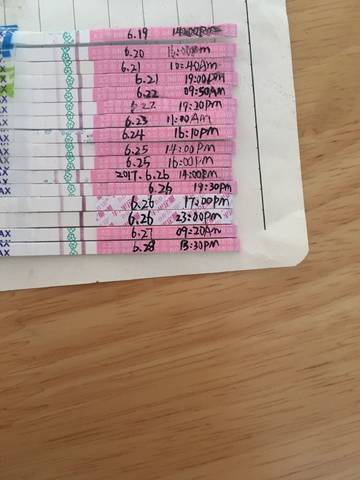 6.19 14:00pm
6.20 16:00pm
6.21 10:40Am
6.21 19:00pm
6.22 09:50Am
6.22 19:20pm
6.23 11:00Am
6.24 16:10pm
6.25 14:00pm
6.25 16:00pm
2017.6.26 14:00pm
6.26 19:30pm
6.26 17:00pm
6.26 23:00pm
6.27 09:20Am
6.28 13:30pm